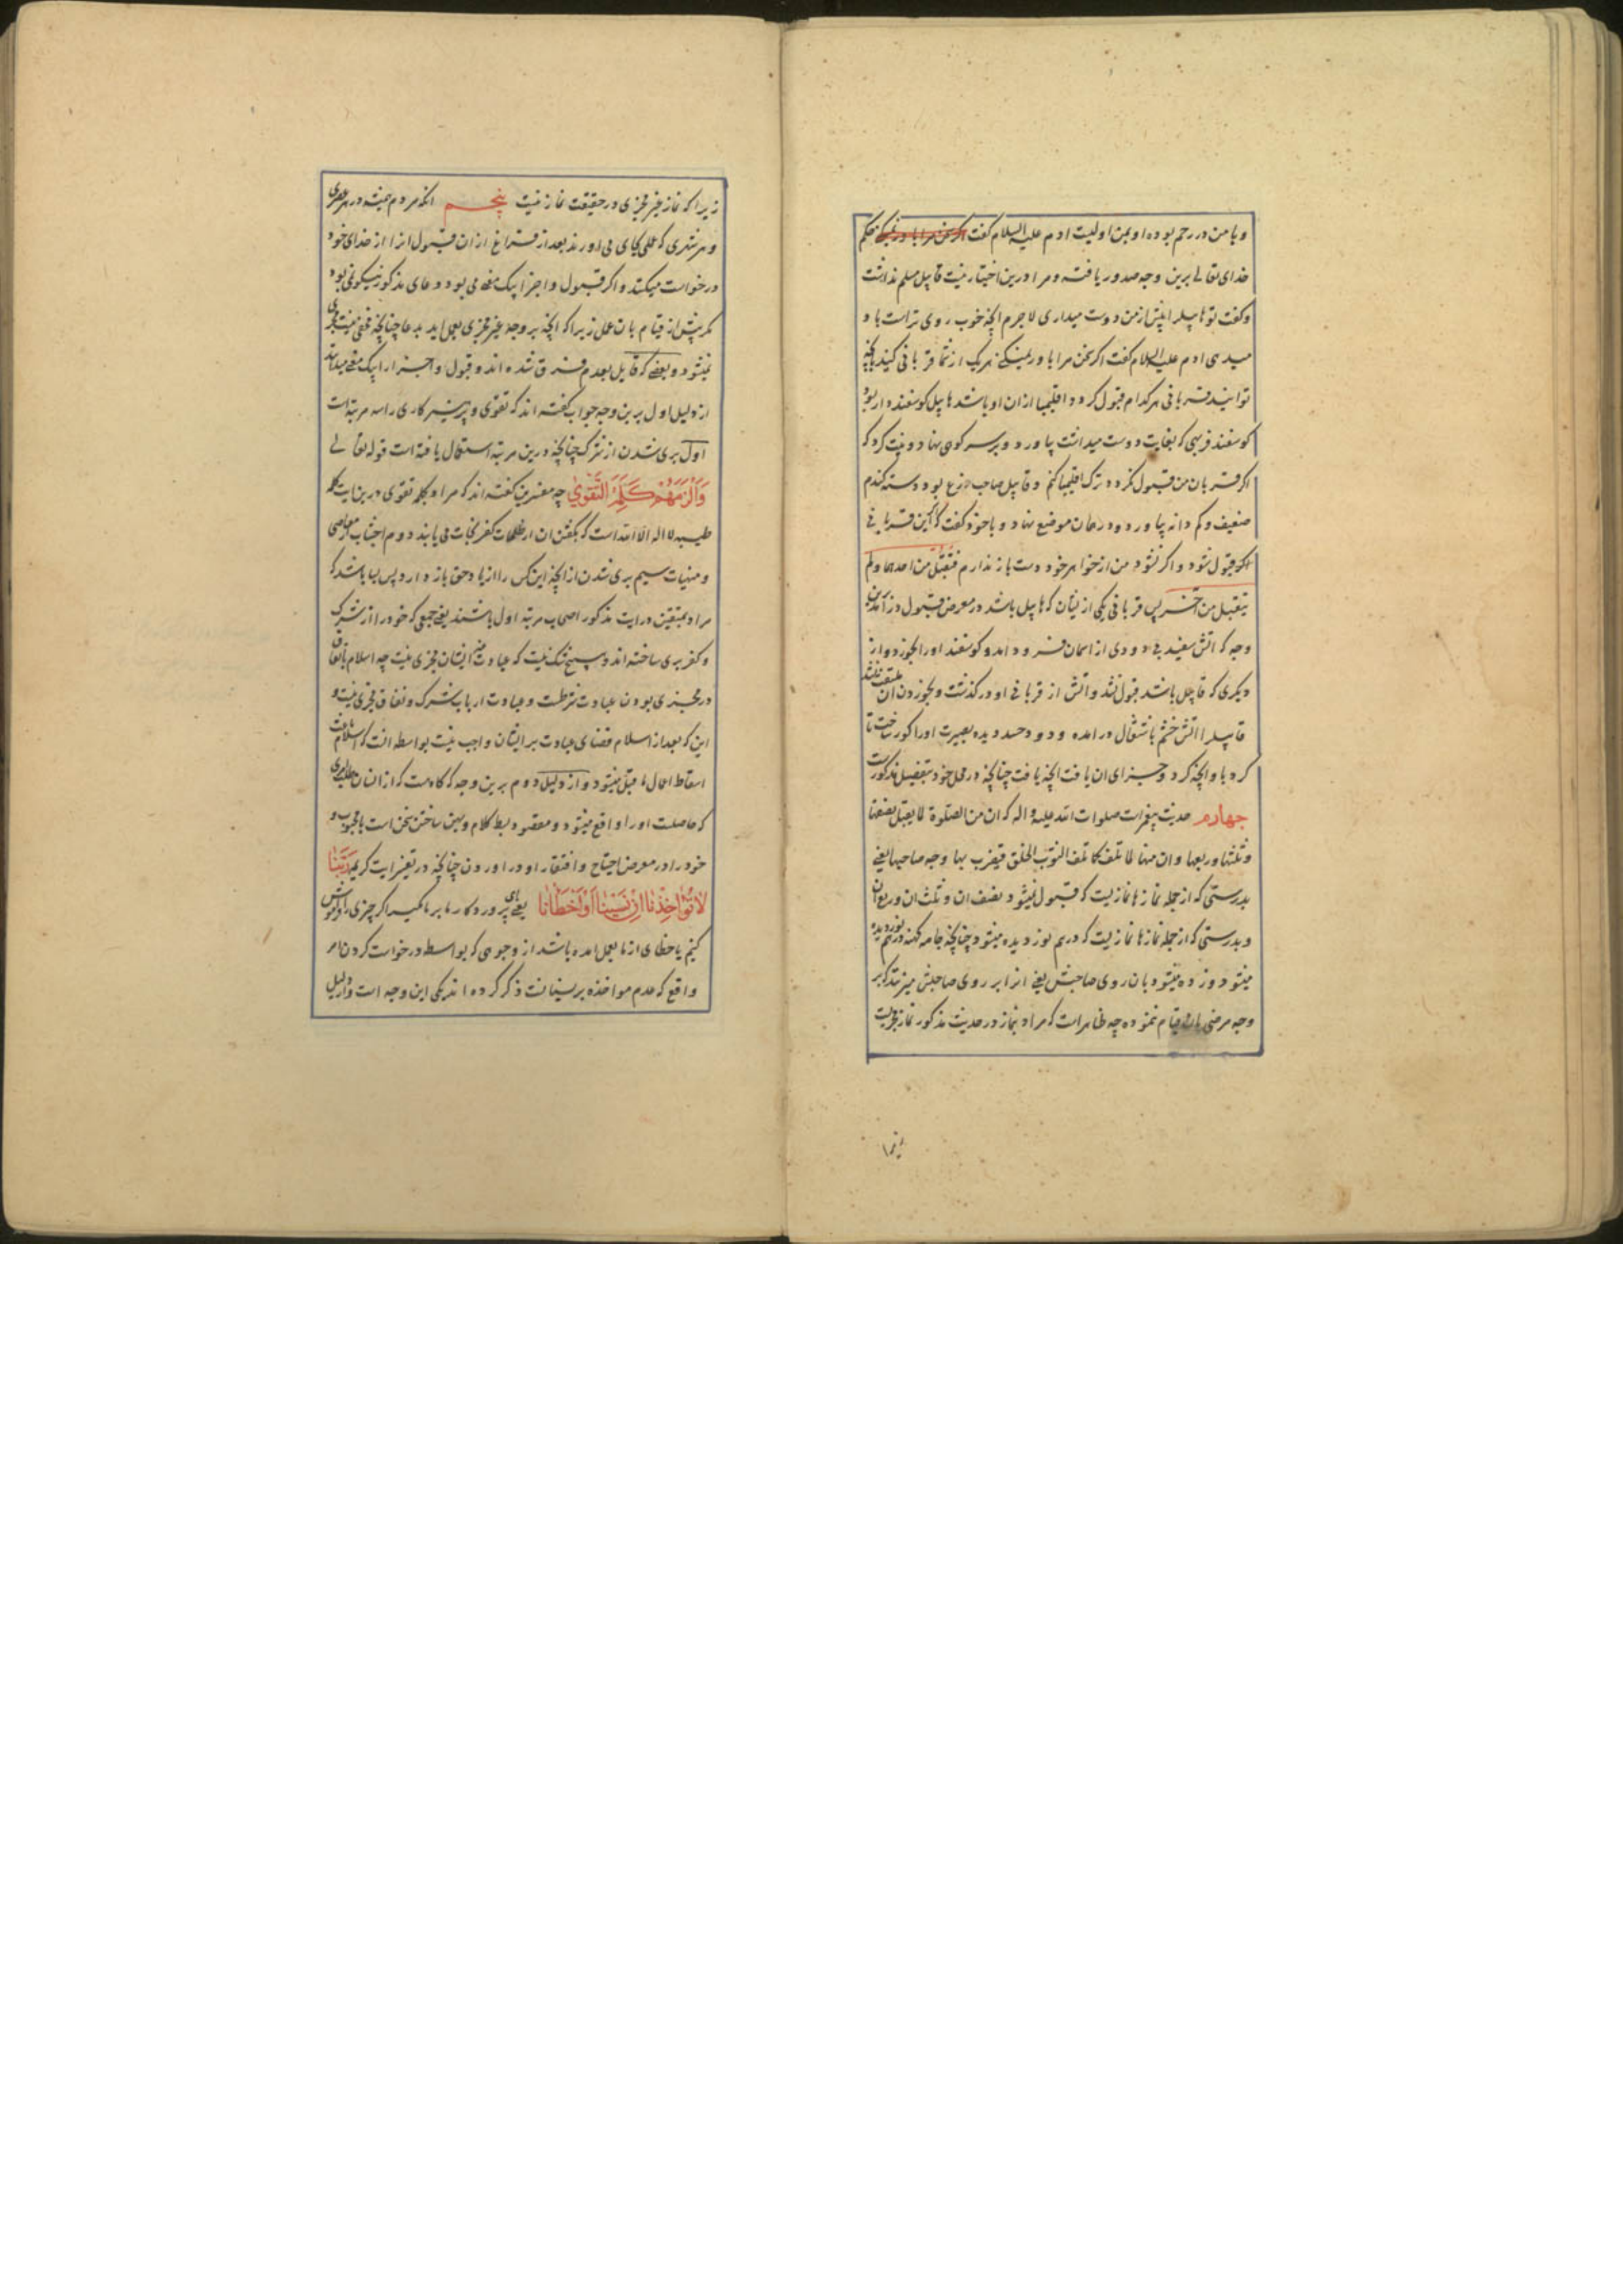 و با من در رحم بوده او بمن اولیت ادم علیه السلام کفت اکر سخن مرا باور نمیکنی حکم
خدای تعالی برین وجه صدور یافته و مرا درین اختیار نیست قابیل مسلم نداشت
و کفت تو هابیل را بیش از من دوست میداری لاجرم انچه خوب روی تراست باو
میدهی ادم علیه السلام کفت اکر سخن مرا باور نمیکنی هریک از شما قربانی کنید بانچه
توانید قربانی هرکدام قبول کردد اقلیما ازان او باشد هابیل کوسفنددار بود
کوسفند فربهی که بغایت دوست میداشت بیاورد و بر سر کوهی نهاد و نیت کرد که
اکر قربان من قبول نکردد ترک اقلیما کنم و قابیل صاحب زرع بود دسته کندم
ضعیف و کم دانه بیاورد و در همان موضع نهاد و با خود کفت که این قربانی
اکر قبول شود و اکر نشود من از خواهر خود دست باز ندارم فتقبل من احدهما ولم
یتقبل من الاخر پس قربانی یکی از یشان که هابیل باشد در معرض قبول درامد باین
وجه که اتش سفید بی دودی از اسمان فرود امد و کوسفند اورا بخورد و از
دیکری که قابیل باشد قبول نشد و اتش از قربانی او درکذشت و بخوردن ان ملتفت نشد
قابیل را اتش خشم باشتعال درامده و دود حسد دیده بصیرت اورا کور ساخت تا
کرد باو انچه کرد و جزای ان یافت انچه یافت چنانچه در محل خود بتفصیل مذکورست
چهارم حدیث پیغمبرات صلوات الله علیه و اله که ان من الصلوة لما یقبل نصفها
و ثلثها و ربعها و ان منها لما تلف کما تلف الثوب الخلق فیضرب بها وجه صاحبها یعنی
بدرستی که از جمله نمازها نمازیست که قبول میشود نصف ان و ثلث ان و ربع ان
و بدرستی که از جمله نمازها نمازیست که درهم نوردیده میشود چنانچه جامه کهنه درهم نوردیده
میشود و زده میشود بان روی صاحبش یعنی انرا بر روی صاحبش میزنند که بر
وجه مرضی بان قیام ننموده چه ظاهرات که مراد بنماز در حدیث مذکور نماز مجزیست
زیرا که نماز غیر مجزی در حقیقت نماز نیست پنجم انکه مردم همیشه در هر عصری
و هر شهری که عملی بجای می اورند بعد از فراغ ازان قبول انرا از خدای خود
درخواست میکنند و اکر قبول و اجزا بیک معنی می بود دعای مذکور نیکو نمی بود
مکر پیش از قیام بان عمل زیرا که انچه بر وجه غیر مجزی بعمل اید بدعا چنانچه مخفی نیست مجزی
نمیشود و بعضی که قایل بعدم فرق شده اند و قبول و اجزا را بیک معنی میدانند
از دلیل اول برین وجه جواب کفته اند که تقوی و پرهیزکاری را سه مرتبه است
اول بری شدن از شرک چنانچه درین مرتبه استعمال یافته است قوله تعالی
وَاَلْزَمَهُمْ كَلِمَةَ التَّقْوىٰ چه مفسرین کفته اند که مراد بکلمه تقوی درین ایت کلمه
طیبه لا اله الا الله است که بکفتن ان از ظلمات کفر نجات می یابند دوم اجتناب معاصی
و منهیات سیم بری شدن از انچه این کس را از یاد حق باز دارد پس میباید که
مراد بمتقین درایت مذکور اصحاب مرتبه اول باشند یعنی جمعی که خود را از شرک
و کفر بری ساخته اند و هیچ شک نیست که عبادت غیر ایشان مجزی نیست چه اسلام باتفاق
در مجزی بودن عبادت شرطست و عبادت ارباب شرک و نفاق مجزی نیست و
این که بعد از اسلام قضای عبادت بر ایشان واجب نیست بواسطه انست که اسلام باعث
اسقاط اعمال ما قبل میشود و از دلیل دوم برین وجه که کاه هست که از انسان طلب امری
که حاصلست اورا واقع میشود و مقصود بسط کلام و پهن ساختن سخن است با محبوب و
خود را در معرض احتیاج و افتقار او در اوردن چنانچه در تفسیر ایت کریمه رَبَّنا
لاتُؤاخِذْنا اِنْ نَسينا اَوْ اَخْطَأنا یعنی ای پروردکار ما بر ما مکیر اکر چیزی را فراموش
کنیم یا خطای از ما بعمل امده باشد از وجوهی که بواسطه درخواست کردن امر
واقع که عدم مواخذه بر نسیانست ذکر کرده اند یکی این وجه است و از دلیل